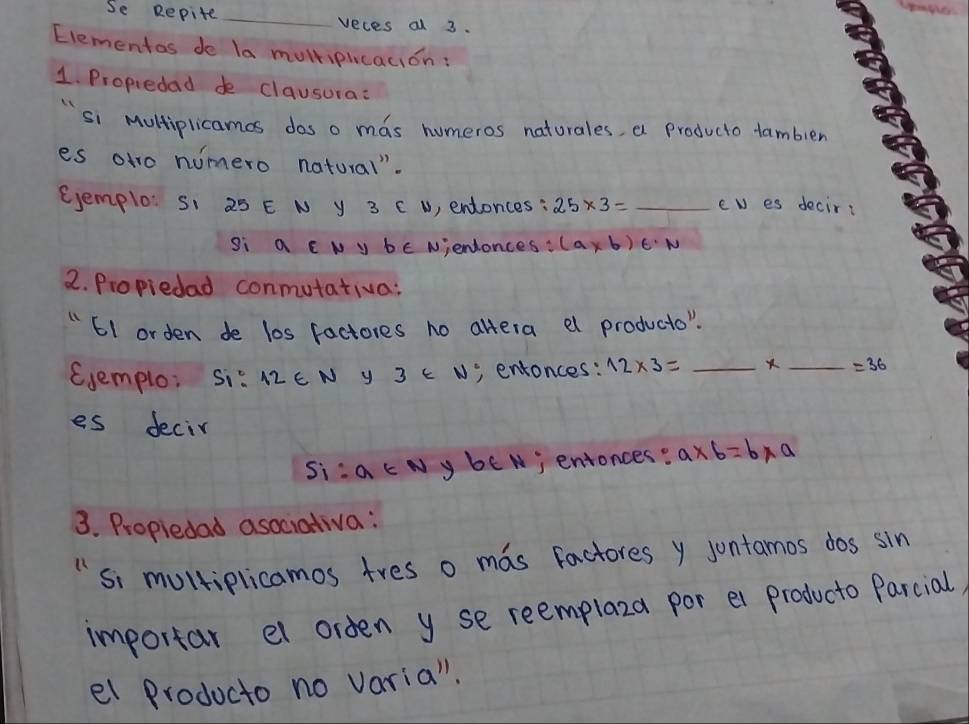 Se Repite ______ veces al 3.
Elementos de la multiplicación:
1. Propiedad de clausura:
"Si Multiplicamos dos o más numeros naturales, el Producto tambien
es otro número natural".
Ejemplo: Si 25 ∈ N y 3 ∈ N, entonces: 25×3= ____ ∈ N es decir:
Si a ∈ N y b ∈ N; entonces: (a×b) ∈ N
2. Propiedad conmutativa:
"El orden de los factores no altera el producto".
Ejemplo: Si: 12 ∈ N y 3 ∈ N; entonces: 12×3= ____ × ____ =36
es decir
Si: a ∈ N y b ∈ N; entonces: a×b=b×a
3. Propiedad asociativa:
"Si multiplicamos tres o más factores y juntamos dos sin
importar el orden y se reemplaza por el producto Parcial,
el Producto no varia".